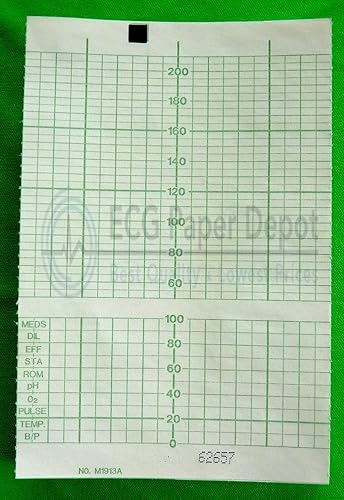 200
180
160
140
120
ECG Paper Depot
100
80
Best Quality & Lowest Prices
60
MEDS
100
DIL
EFF
80
STA
ROM
60
pH
O2
40
PULSE
TEMP.
20
B/P
0
62657
NO. M1913A